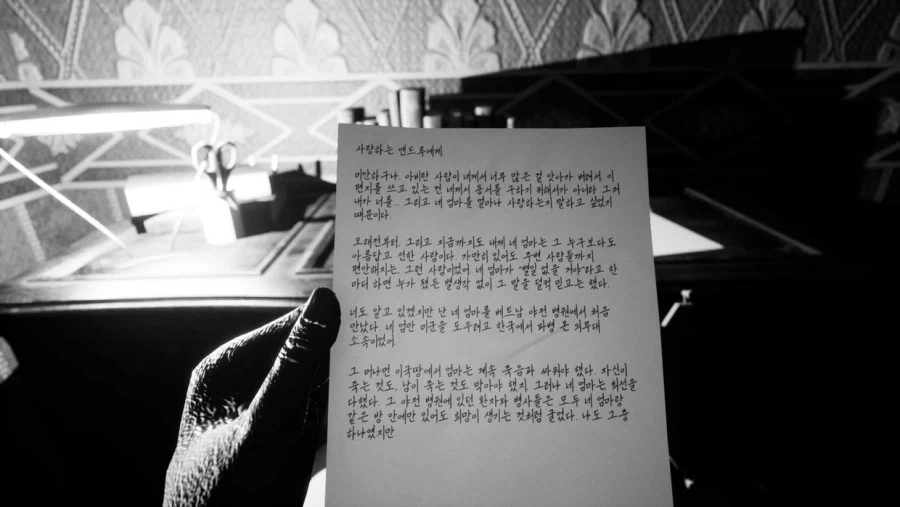 사랑하는 앤드루에게
미안하구나. 아비란 사람이 네게서 너무 많은 걸 앗아가 버려서. 이
편지를 쓰고 있는 건 네게서 용서를 구하기 위해서가 아니라 그저
내가 너를... 그리고 네 엄마를 얼마나 사랑하는지 말하고 싶었기
때문이다.
오래전부터, 그리고 지금까지도 내게 네 엄마는 그 누구보다도
아름답고 선한 사람이다. 가만히 있어도 주변 사람들까지
편안해지는, 그런 사람이었어. 네 엄마가 "별일 없을 거야"라고 한
마디 하면 누가 됐든 별생각 없이 그 말을 덜컥 믿고는 했다.
너도 알고 있겠지만 난 네 엄마를 베트남 야전 병원에서 처음
만났다. 네 엄만 미군을 도우려고 한국에서 파병 온 의무대
소속이었어.
그 머나먼 이국땅에서 엄마는 계속 죽음과 싸워야 했다. 자신이
죽는 것도, 남이 죽는 것도 막아야 했지. 그러나 네 엄마는 최선을
다했다. 그 야전 병원에 있던 환자와 병사들은 모두 네 엄마랑
같은 방 안에만 있어도 희망이 생기는 것처럼 굴었다. 나도 그중
하나였지만.